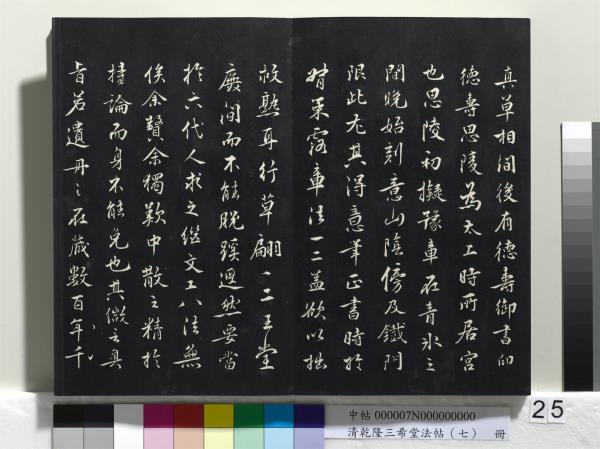 真草相間後有德壽御書印
德壽思陵為太上時所居宮
也思陵初擬豫章在青冰之
間晚始刻意山陰傍及鐵門
限此尤其得意筆正書時於
婿某露章法一二蓋欲以拙
故熟耳行草翩〻二王堂
廡間而不能脫蹊逕然要當
於六代人求之継文工八法無
俟余贅余獨歎中散之精於
持論而身不能免也其微之真
旨若遺丹之在藏數百年千
中帖 000007N000000000
清乾隆三希堂法帖（七） 冊
25